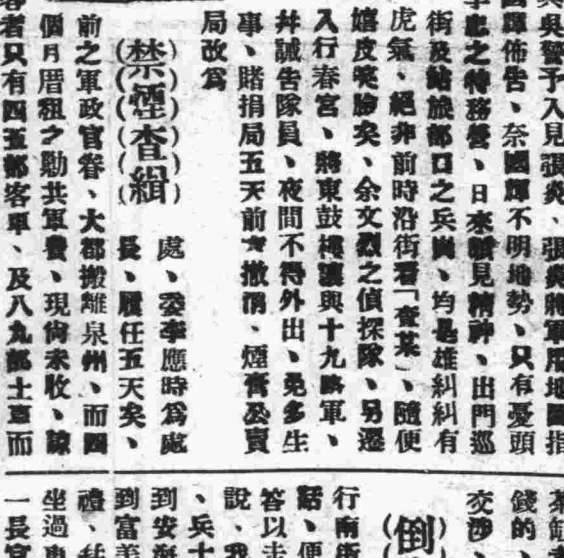 吳警予入見張炎、張炎將軍用地圖指
國輝佈告、奈國輝不明地勢、只有憂頭
之特務營、日來頗見精神、出門巡
街及站旅部口之兵、均是雄糾糾有
虎氣、絕非前時沿街看「查某」、隨便
嬉皮笑臉矣、余文烈之偵探隊、另遷
入行春宮、將東鼓樓讓與十九路軍、
幷誡告隊員、夜間不得外出、免多生
事、賭捐局五天前撤消、煙膏公賣
局改爲
禁煙查緝
處、委李應時爲處
長、履任五天矣、
前之軍政官眷、大都搬離泉州、而四
個月厝租之勦共軍費、現尙未收、諒
客者只有四五部客車、及八九部士而
茶
錢的
交沙、
(倒
行南街
話、便
答以未
說、我
、兵士
到安海
到富美
禮、
坐過
一長官